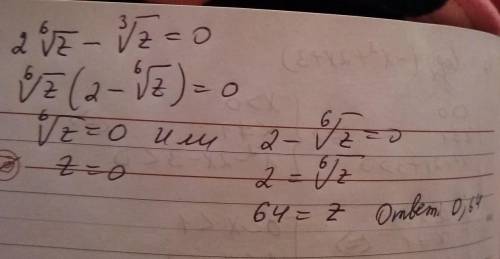 2 ⁶√z − ³√z = 0
⁶√z (2 − ⁶√z) = 0
⁶√z = 0 или 2 − ⁶√z = 0
z = 0 2 = ⁶√z
64 = z Ответ: 0,64